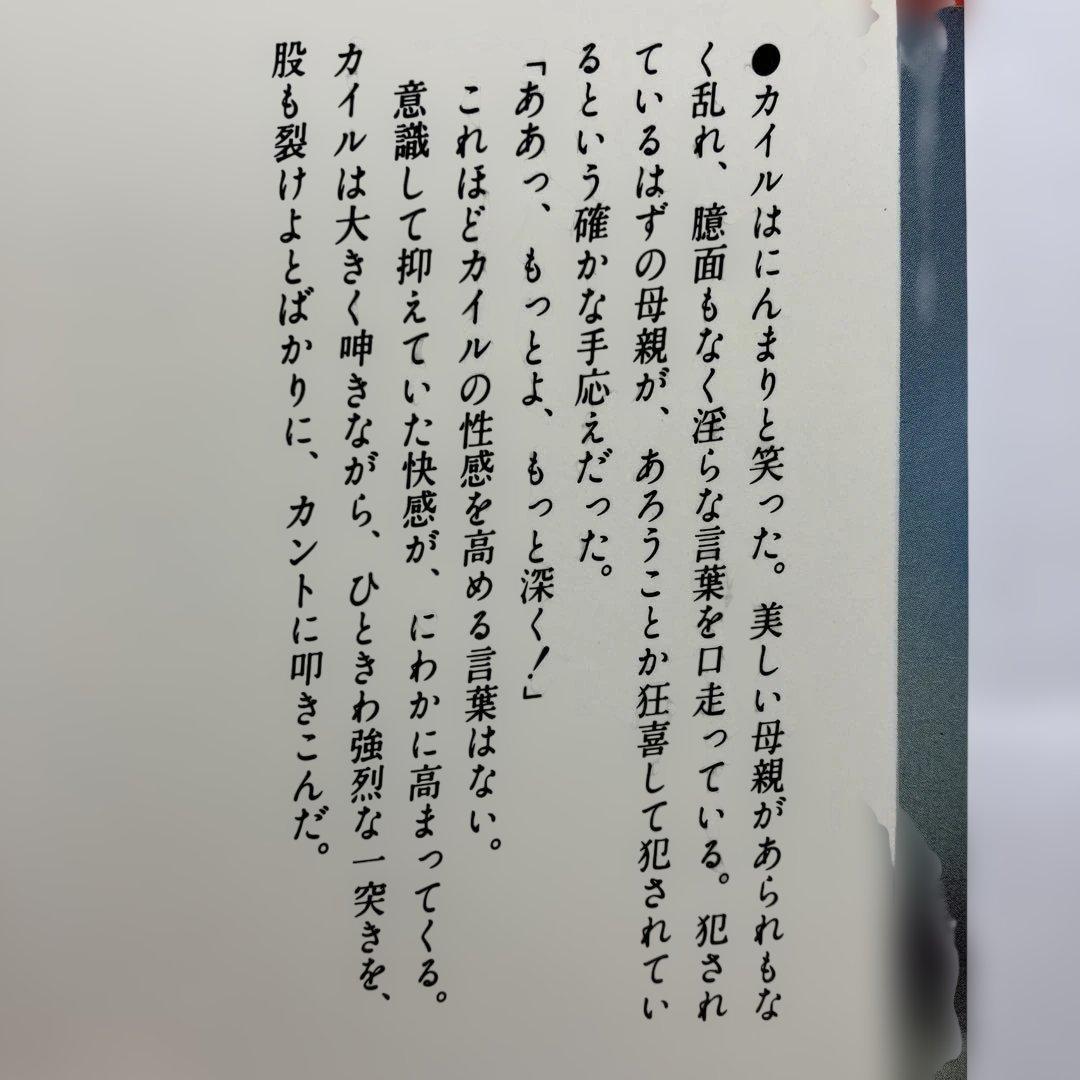 ●カイルはにんまりと笑った。美しい母親があられもな
く乱れ、臆面もなく淫らな言葉を口走っている。犯され
ているはずの母親が、あろうことか狂喜して犯されてい
るという確かな手応えだった。
「ああっ、もっとよ、もっと深く!」
これほどカイルの性感を高める言葉はない。
意識して抑えていた快感が、にわかに高まってくる。
カイルは大きく呻きながら、ひときわ強烈な一突きを、
股も裂けよとばかりに、カントに叩きこんだ。